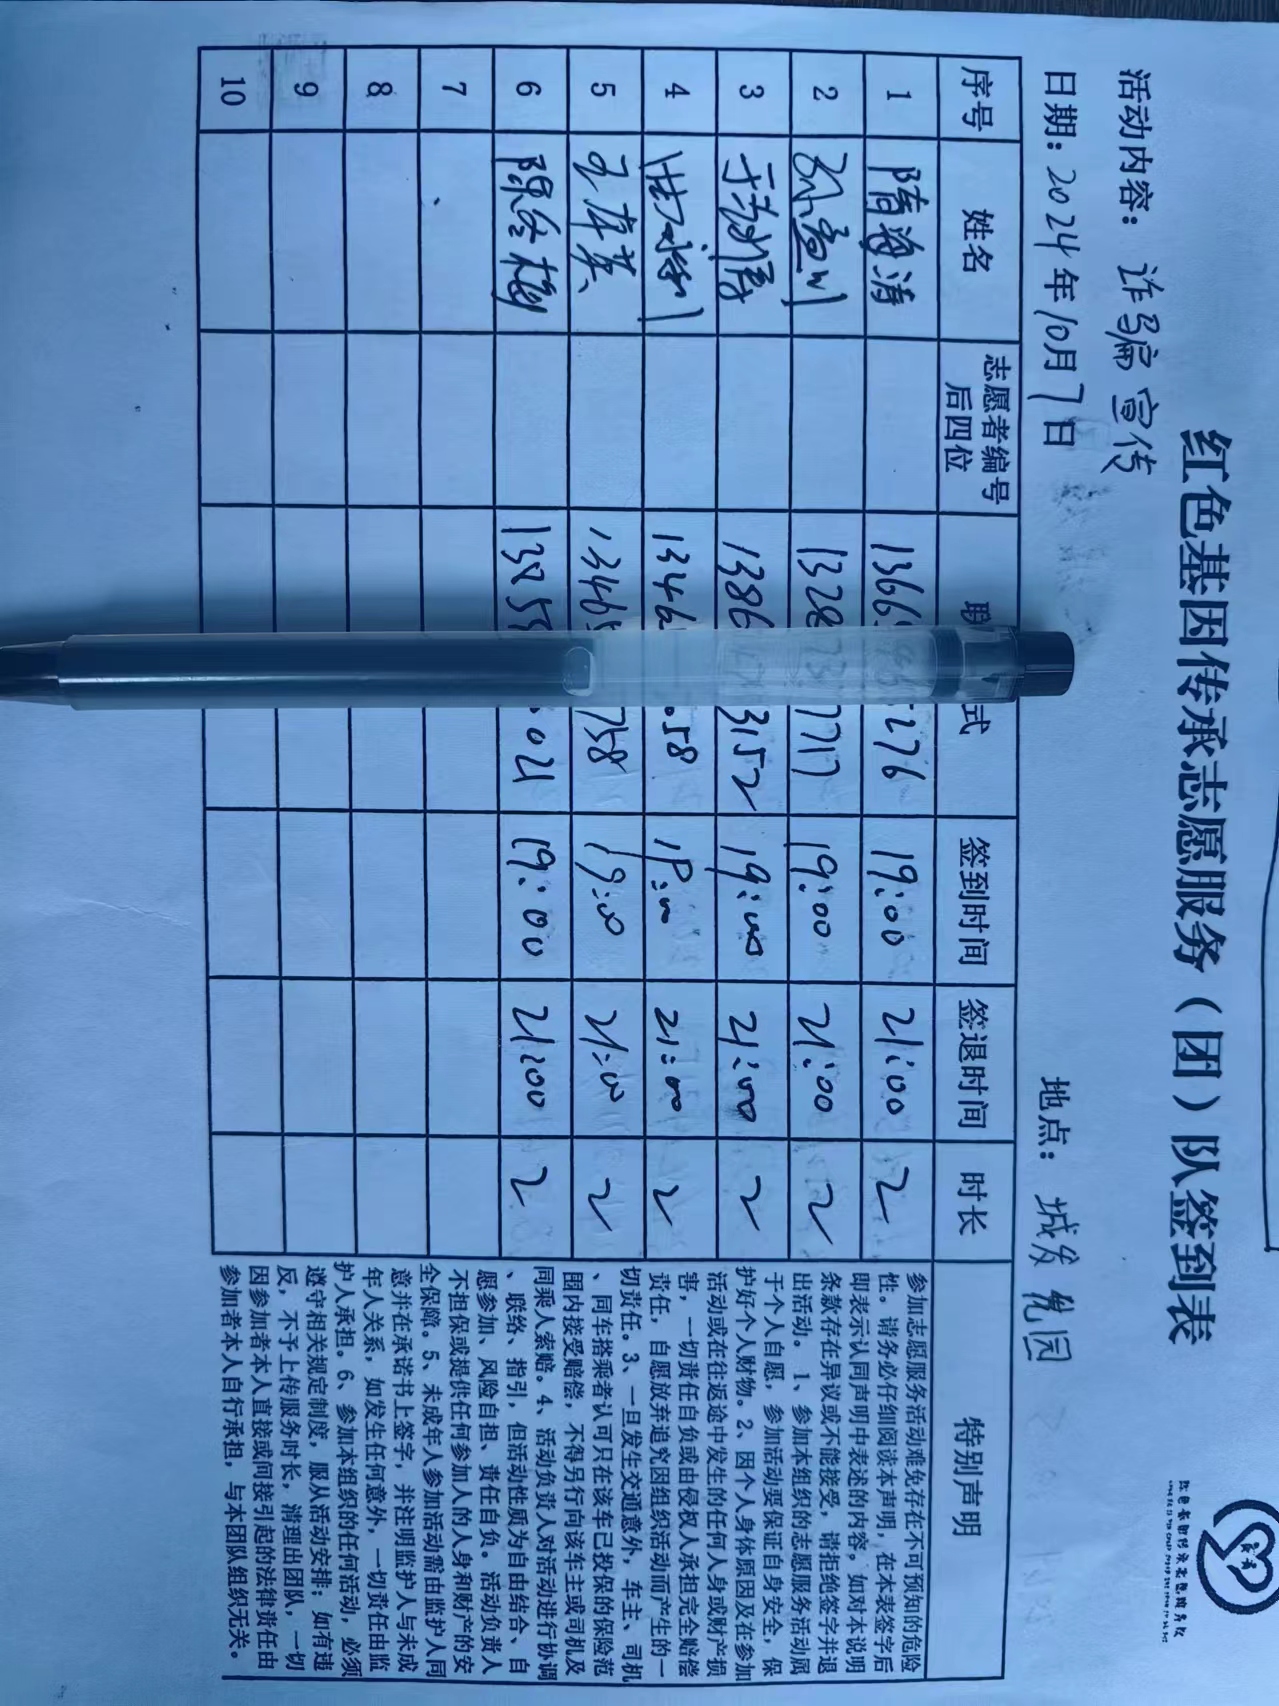 红色基因传承志愿服务（团）队签到表
活动内容：诈骗宣传
日期：2024年10月7日 地点：城发悦园
序号 姓名 志愿者编号后四位 联 式 签到时间 签退时间 时长 特别声明
1 隋海涛 1366 276 19:00 21:00 2
2 1328 7717 19:00 21:00 2
3 1386 3152 19:00 21:00 2
4 1346 58 19:00 21:00 2
5 1346 758 19:00 21:00 2
6 021 19:00 21:00 2
7
8
9
10
参加志愿服务活动难免存在不可预知的危险
性。请务必仔细阅读本声明，在本表签字后
即表示认同声明中表述的内容。如对本说明
条款存在异议或不能接受，请拒绝签字并退
出活动。1、参加本组织的志愿服务活动属
于个人自愿，参加活动要保证自身安全，保
护好个人财物。2、因个人身体原因及在参加
活动或在往返途中发生的任何人身或财产损
害，一切责任自负或由侵权人承担完全赔偿
责任，自愿放弃追究因组织活动而产生的一
切责任。3、一旦发生交通意外，车主、司机
、同车搭乘者认可只在该车已投保的保险范
围内接受赔偿，不得另行向该车主或司机及
同乘人索赔。4、活动负责人对活动进行协调
、联络、指引，但活动性质为自由结合、自
愿参加、风险自担、责任自负。活动负责人
不担保或提供任何参加人的人身和财产的安
全保障。5、未成年人参加活动需由监护人同
意并在承诺书上签字，并注明监护人与未成
年人关系，如发生任何意外，一切责任由监
护人承担。6、参加本组织的任何活动，必须
遵守相关规定制度，服从活动安排；如有违
反，不予上传服务时长，清理出团队，一切
因参加者本人直接或间接引起的法律责任由
参加者本人自行承担，与本团队组织无关。